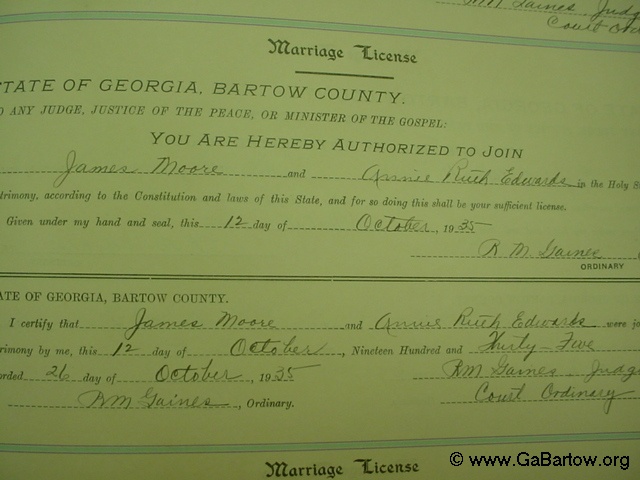 RM Gaines, Judg
Court Ord
Marriage License
STATE OF GEORGIA, BARTOW COUNTY.
O ANY JUDGE, JUSTICE OF THE PEACE, OR MINISTER OF THE GOSPEL:
YOU ARE HEREBY AUTHORIZED TO JOIN
James Moore and Annie Ruth Edwards in the Holy S
trimony, according to the Constitution and laws of this State, and for so doing this shall be your sufficient license.
Given under my hand and seal, this 12 day of October, 1935
R M Gaines
ORDINARY
ATE OF GEORGIA, BARTOW COUNTY.
I certify that James Moore and Annie Ruth Edwards were jo
trimony by me, this 12 day of October, Nineteen Hundred and Thirty-Five
orded 26 day of October, 1935 RM Gaines, Judge
RM Gaines, Ordinary. Court Ordinary
Marriage License
© www.GaBartow.org